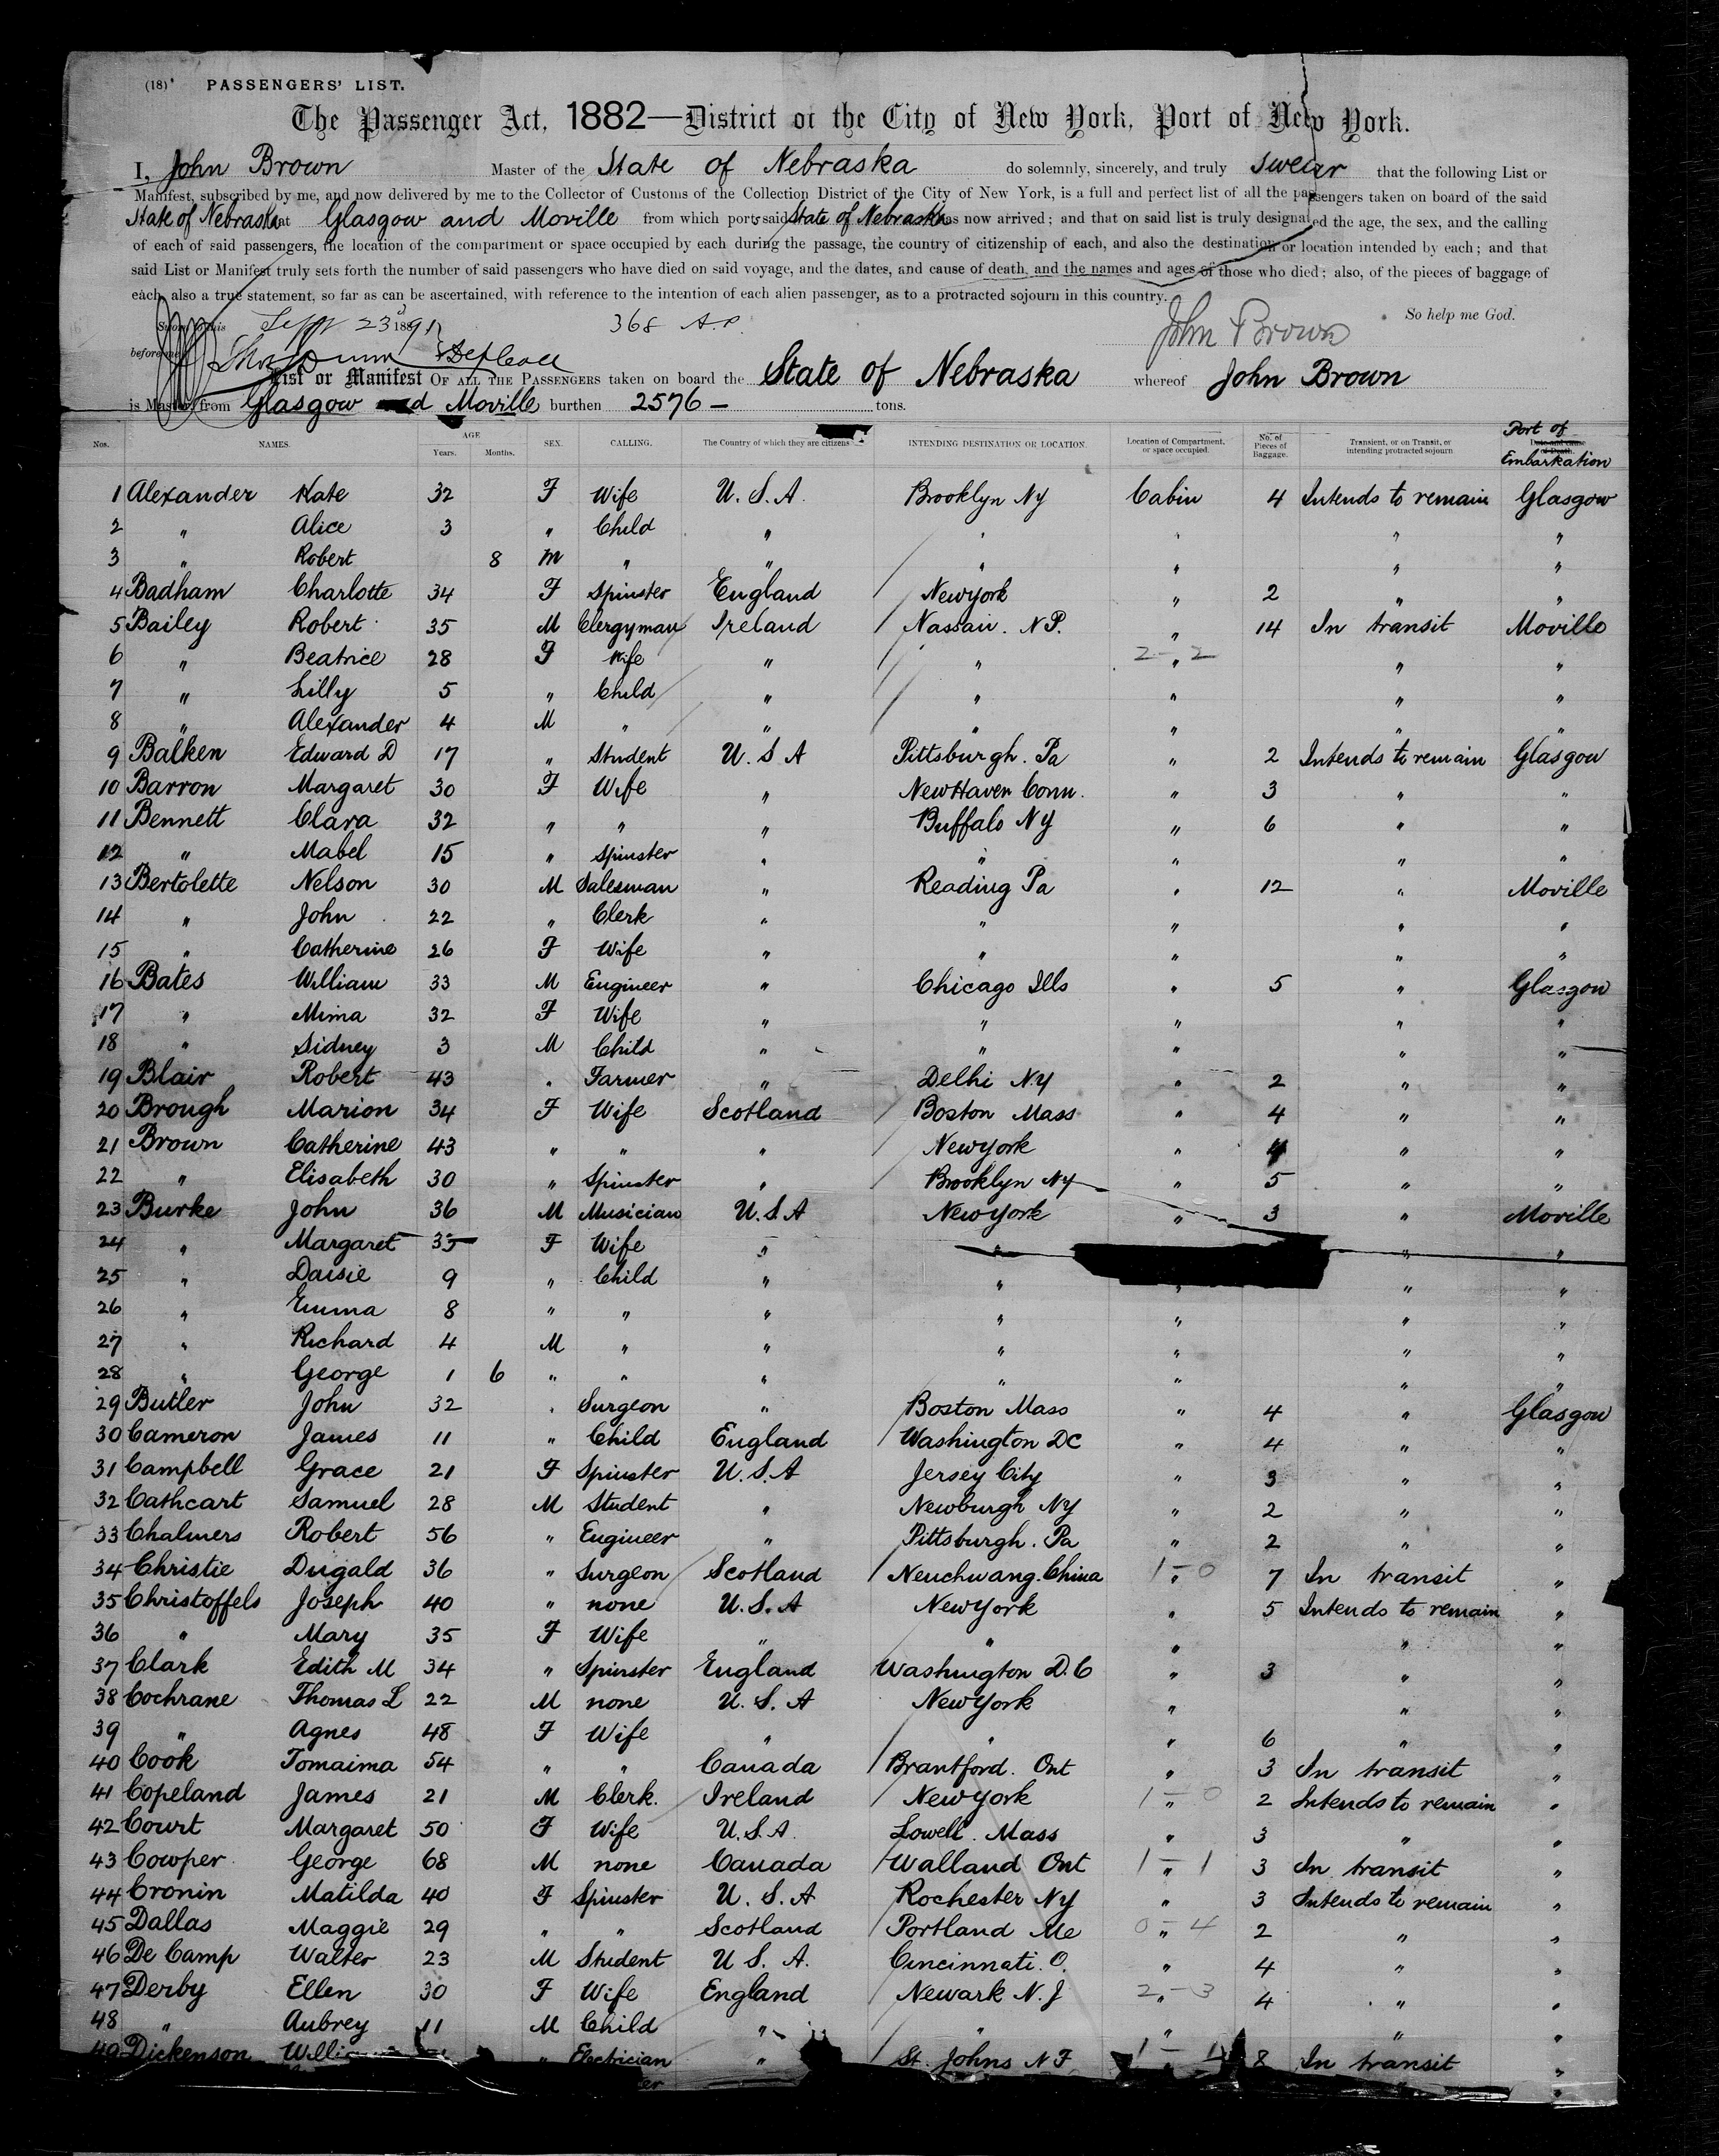 (18) PASSENGERS' LIST.
The Passenger Act, 1882—District of the City of New York, Port of New York.
I, John Brown Master of the State of Nebraska do solemnly, sincerely, and truly swear that the following List or
Manifest, subscribed by me, and now delivered by me to the Collector of Customs of the Collection District of the City of New York, is a full and perfect list of all the passengers taken on board of the said
State of Nebraska at Glasgow and Moville from which port, said State of Nebraska has now arrived; and that on said list is truly designated the age, the sex, and the calling
of each of said passengers, the location of the compartment or space occupied by each during the passage, the country of citizenship of each, and also the destination or location intended by each; and that
said List or Manifest truly sets forth the number of said passengers who have died on said voyage, and the dates, and cause of death, and the names and ages of those who died; also, of the pieces of baggage of
each, also a true statement, so far as can be ascertained, with reference to the intention of each alien passenger, as to a protracted sojourn in this country.
So help me God.
Sworn to this Sept 23 1891 368 A.P. John Brown
before me
List or Manifest OF ALL THE PASSENGERS taken on board the State of Nebraska whereof John Brown
is Master, from Glasgow and Moville burthen 2576 — tons.
Nos. NAMES. AGE Years. Months. SEX. CALLING. The Country of which they are citizens INTENDING DESTINATION OR LOCATION. Location of Compartment, or space occupied. No. of Pieces of Baggage. Transient, or on Transit, or intending protracted sojourn Port of Embarkation
1 Alexander Kate 32 F Wife U.S.A. Brooklyn Ny Cabin 4 Intends to remain Glasgow
2 " Alice 3 " Child " " " " "
3 " Robert 8 M " " " " " "
4 Badham Charlotte 34 F Spinster England / Newyork " 2 " "
5 Bailey Robert 35 M Clergyman Ireland / Nassau. N P. " 14 In transit Moville
6 " Beatrice 28 F Wife " / " 2 - " 2 " "
7 " Lilly 5 " Child " / " " " "
8 " Alexander 4 M " " / " " " "
9 Balken Edward D 17 " Student U.S A Pittsburgh. Pa " 2 Intends to remain Glasgow
10 Barron Margaret 30 F Wife " NewHaven Conn. " 3 " "
11 Bennett Clara 32 " " " Buffalo NY " 6 " "
12 " Mabel 15 " Spinster " " " " "
13 Bertolette Nelson 30 M Salesman " Reading Pa " 12 " Moville
14 " John 22 " Clerk " " " " "
15 " Catherine 26 F Wife " " " " "
16 Bates William 33 M Engineer " Chicago Ills " 5 " Glasgow
17 " Mima 32 F Wife " " " " "
18 " Sidney 3 M Child " " " " "
19 Blair Robert 43 " Farmer " Delhi NY " 2 " "
20 Brough Marion 34 F Wife Scotland / Boston Mass " 4 " "
21 Brown Catherine 43 " " " Newyork " 4 " "
22 " Elisabeth 30 " Spinster " Brooklyn NY " 5 " "
23 Burke John 36 M Musician U.S.A Newyork " 3 " Moville
24 " Margaret 35 F Wife " " " "
25 " Daisie 9 " Child " " " " "
26 " Emma 8 " " " " " " "
27 " Richard 4 M " " " " " "
28 " George 1 6 " " " " " " "
29 Butler John 32 " Surgeon " Boston Mass " 4 " Glasgow
30 Cameron James 11 " Child England / Washington DC " 4 " "
31 Campbell Grace 21 F Spinster U.S.A Jersey City " 3 " "
32 Cathcart Samuel 28 M Student " Newburgh NY " 2 " "
33 Chalmers Robert 56 " Engineer " Pittsburgh. Pa " 2 " "
34 Christie Dugald 36 " Surgeon Scotland / Neuchwang. China 1 - " 0 7 In transit "
35 Christoffels Joseph 40 " none U.S.A Newyork " 5 Intends to remain "
36 " Mary 35 F Wife " " " " "
37 Clark Edith M 34 " Spinster England Washington D.C " 3 " "
38 Cochrane Thomas L 22 M none U.S.A Newyork " " "
39 " Agnes 48 F Wife " " " 6 " "
40 Cook Tomaima 54 " " Canada / Brantford. Ont " 3 In transit "
41 Copeland James 21 M Clerk. Ireland / Newyork 1 - " 0 2 Intends to remain "
42 Court Margaret 50 F Wife U.S.A. Lowell. Mass " 3 " "
43 Cowper George 68 M none Canada / Walland Ont 1 - " 1 3 In transit "
44 Cronin Matilda 40 F Spinster U.S.A Rochester NY " 3 Intends to remain "
45 Dallas Maggie 29 " " Scotland / Portland Me 0 - " 4 2 " "
46 De Camp Walter 23 M Student U S. A. Cincinnati. O. " 4 " "
47 Derby Ellen 30 F Wife England / Newark N.J 2 - " 3 4 " "
48 " Aubrey 11 M Child " / " " " "
49 Dickenson " Electrician " / St. Johns N F 8 In transit "